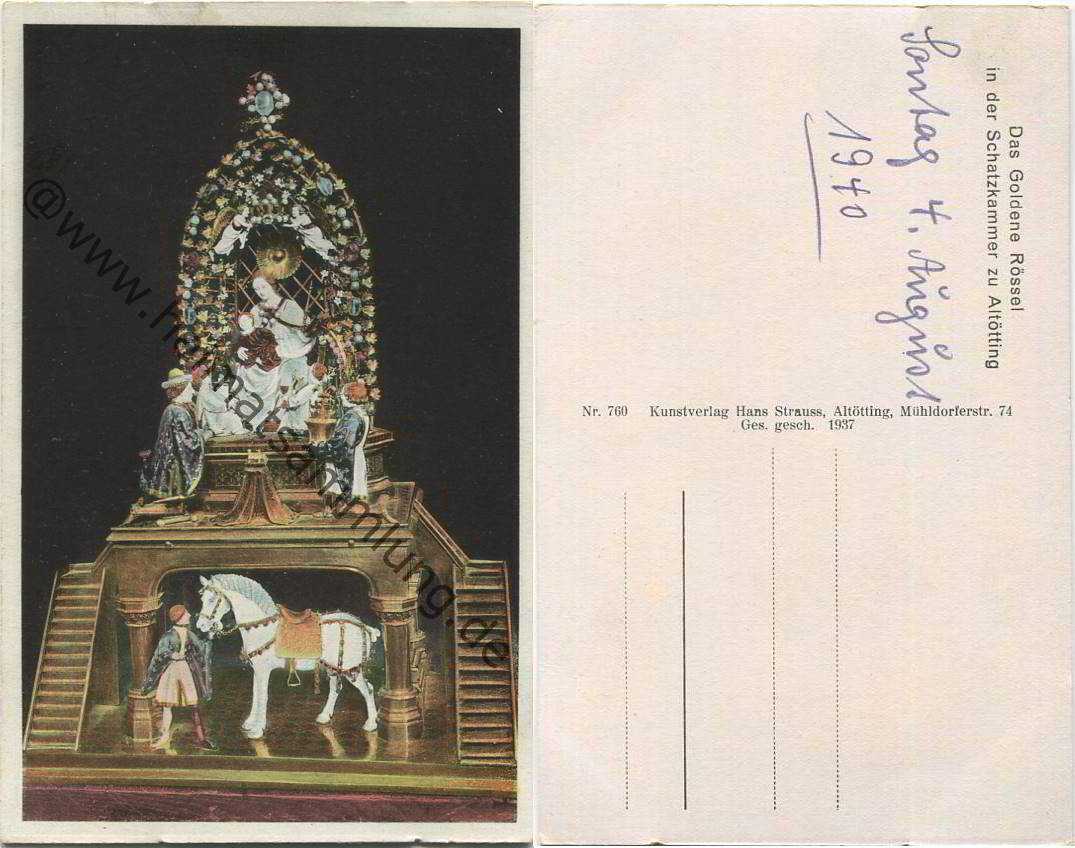 @www.heimatsammlung.de
Das Goldene Rössel
in der Schatzkammer zu Altötting
Sontag 4. August
1940
Nr. 760 Kunstverlag Hans Strauss, Altötting, Mühldorferstr. 74
Ges. gesch. 1937